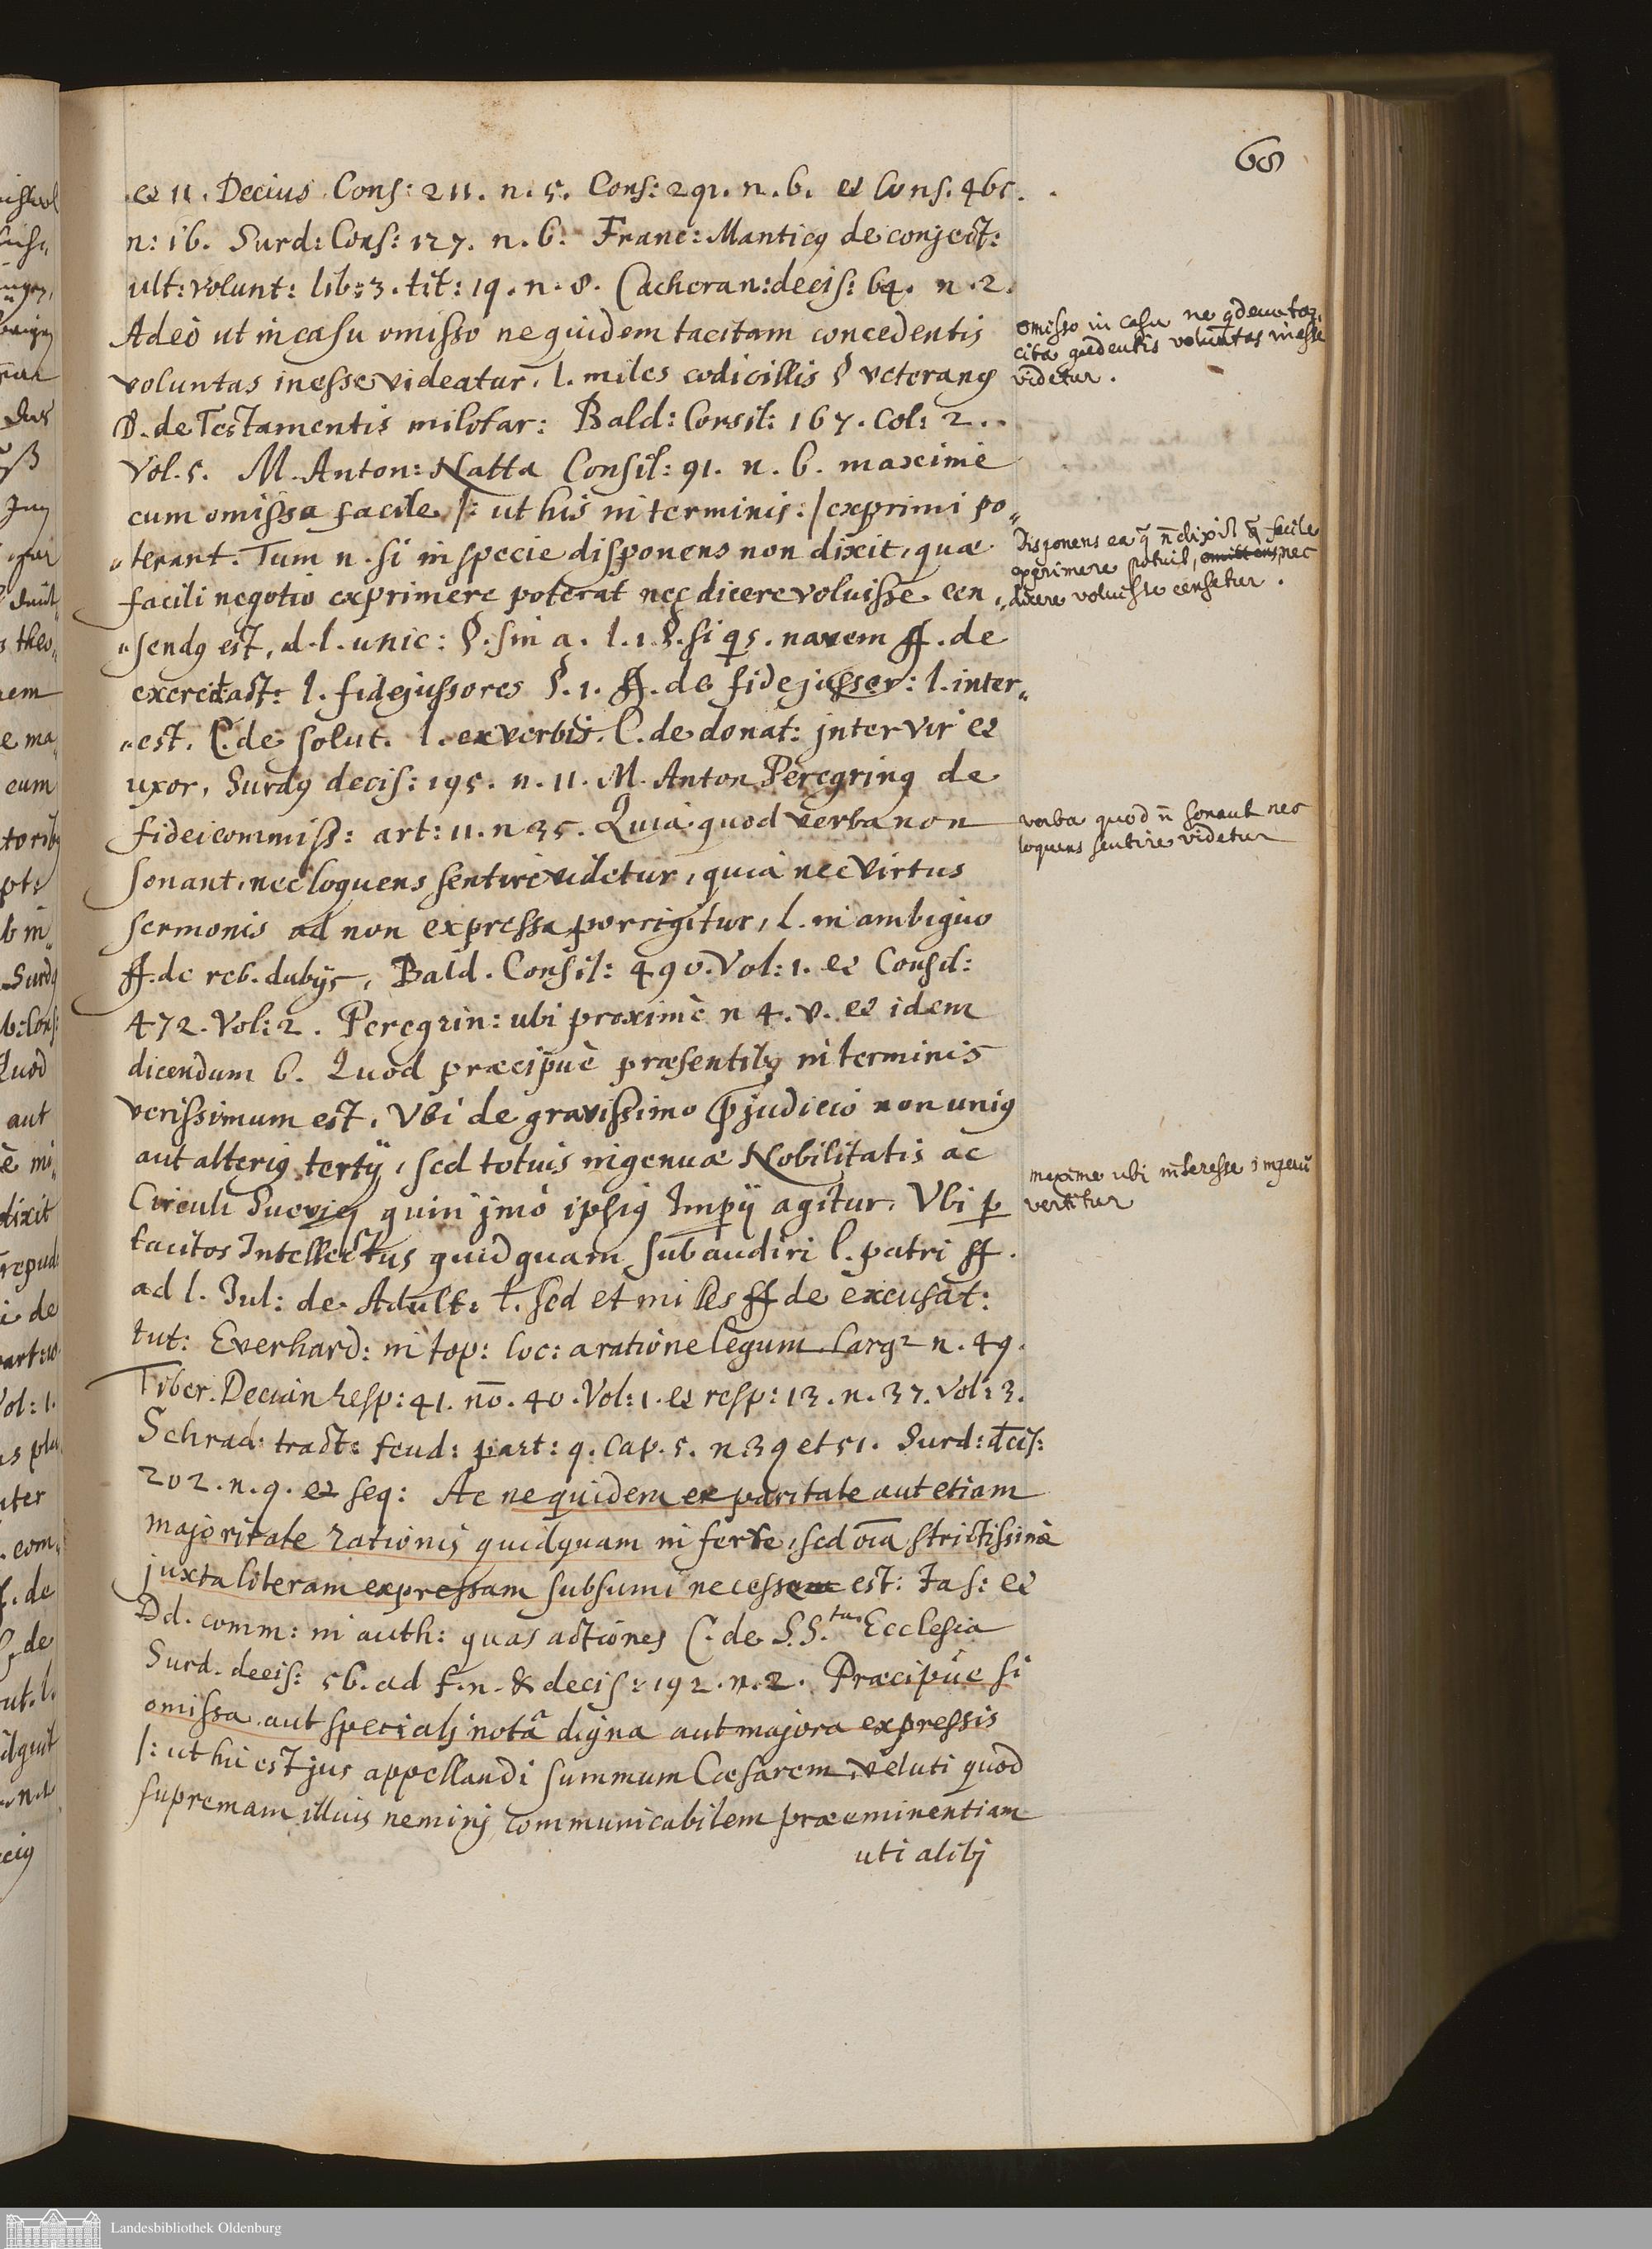 68
et 11. Decius Cons: 211. n. 5. Cons: 291. n. 6. et Cons. 465.
n: 16. Surd: Cons: 127. n. 6. Franc: Manticq de conject:
ult: volunt: lib: 3. tit: 19. n. 8. Cacheran: decis: 64. n. 2.
Adeò ut in casu omisso ne quidem tacitam concedentis
voluntas inesse videatur, l. miles codicillis § veteranq
D. de Testamentis militar: Bald: Consil: 167. Col: 2..
Vol. 5. M. Anton: Natta Consil: 91. n. 6. maximè
cum omissa facile /: ut his in terminis :/ exprimi po„
„terant. Tum n. si in specie disponens non dixit, quæ
facili negotio exprimere poterat nec dicere voluisse cen„
„sendq est, d. l. unic: §. sin a. l. 1. §. si qs. navem ff. de
exercit act: l. fidejussores §. 1. ff. de fidejussor: l. inter„
„est. C. de solut. l. ex verbis. C. de donat: inter vir et
uxor, Surdq decis: 195. n. 11. M. Anton Peregrinq de
fideicommiss: art: 11. n 35. Quia quod verba non
sonant, nec loquens sentire videtur, quia nec virtus
sermonis ad non expressa porrigitur, l. in ambiguo
ff. de reb. dubijs, Bald. Consil: 490. Vol: 1. et Consil:
472. Vol: 2. Peregrin: ubi proximè n 4. v. et idem
dicendum 6. Quod præcipuè præsentibq in terminis
verissimum est, Ubi de gravissimo p̄judicio non uniq
aut alteriq tertij, sed totuis ingenuæ Nobilitatis ac
Circuli Suevici quin jmò ipsiq Impij agitur. Ubi p
tacitos Intellectus quidquam subaudiri l. patri ff.
ad l. Jul: de Adult: l. sed et miles ff de excusat:
tut: Everhard: in top: loc: a ratione legum larg2 n. 49.
Tiber. Decian resp: 41. no. 40. Vol: 1. et resp: 13. n. 37. Vol: 3.
Schrad: tract: feud: part: 9. Cap. 5. n 39 et 51. Surd: decis:
202. n. 9. et seq: Ac ne quidem ex paritate aut etiam
majoritate rationis quidquam inferre, sed oīa strictissimè
juxta literam expressam subsumi necesse est: Jas: et
Dd. comm: in auth: quas actiones C. de S.S.tis Ecclesia
Surd. decis: 56. ad f. n. & decis: 192. n. 2. Præcipuè si
omissa aut specialj notâ digna aut majora expressis
/: ut hic est jus appellandi summum Cæsarem, veluti quod
supremam illius neminj communicabilem præeminentiam
uti alibj
omisso in casu ne qdem ta„
cita ... voluntas inesse
videtur.
Disponens ea q n̄ dixit q facile
exprimere potuit, nec
dicere voluisse censetur.
verba quod n̄ sonant nec
loquens sentire videtur
maxime ubi interesse
vertitur
Landesbibliothek Oldenburg